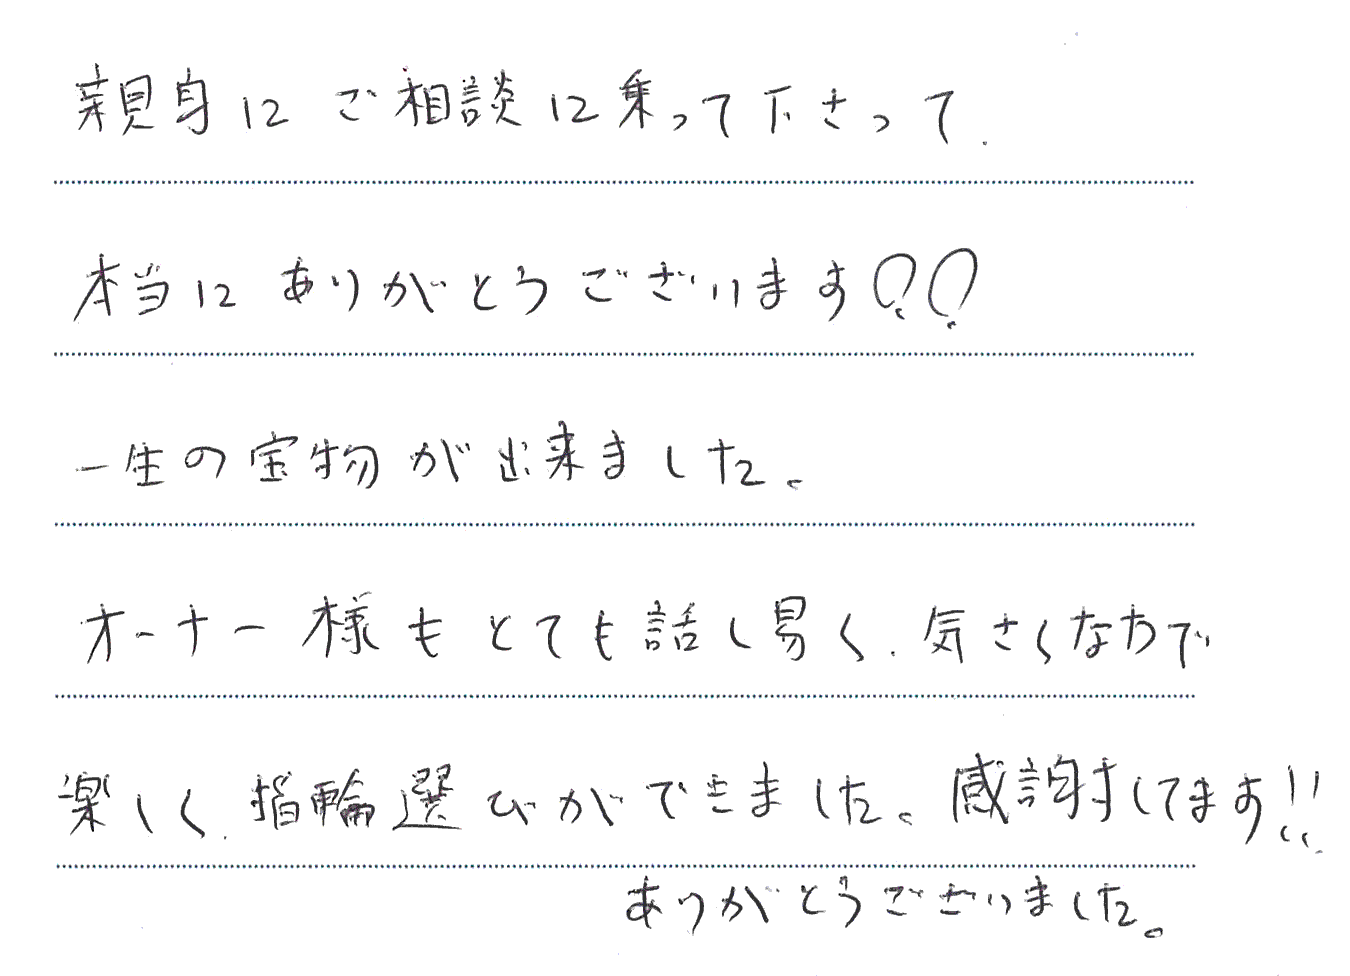 親身にご相談に乗って下さって、
本当にありがとうございます!!
一生の宝物が出来ました。
オーナー様もとても話し易く、気さくな方で
楽しく、指輪選びができました。感謝してます!!
ありがとうございました。